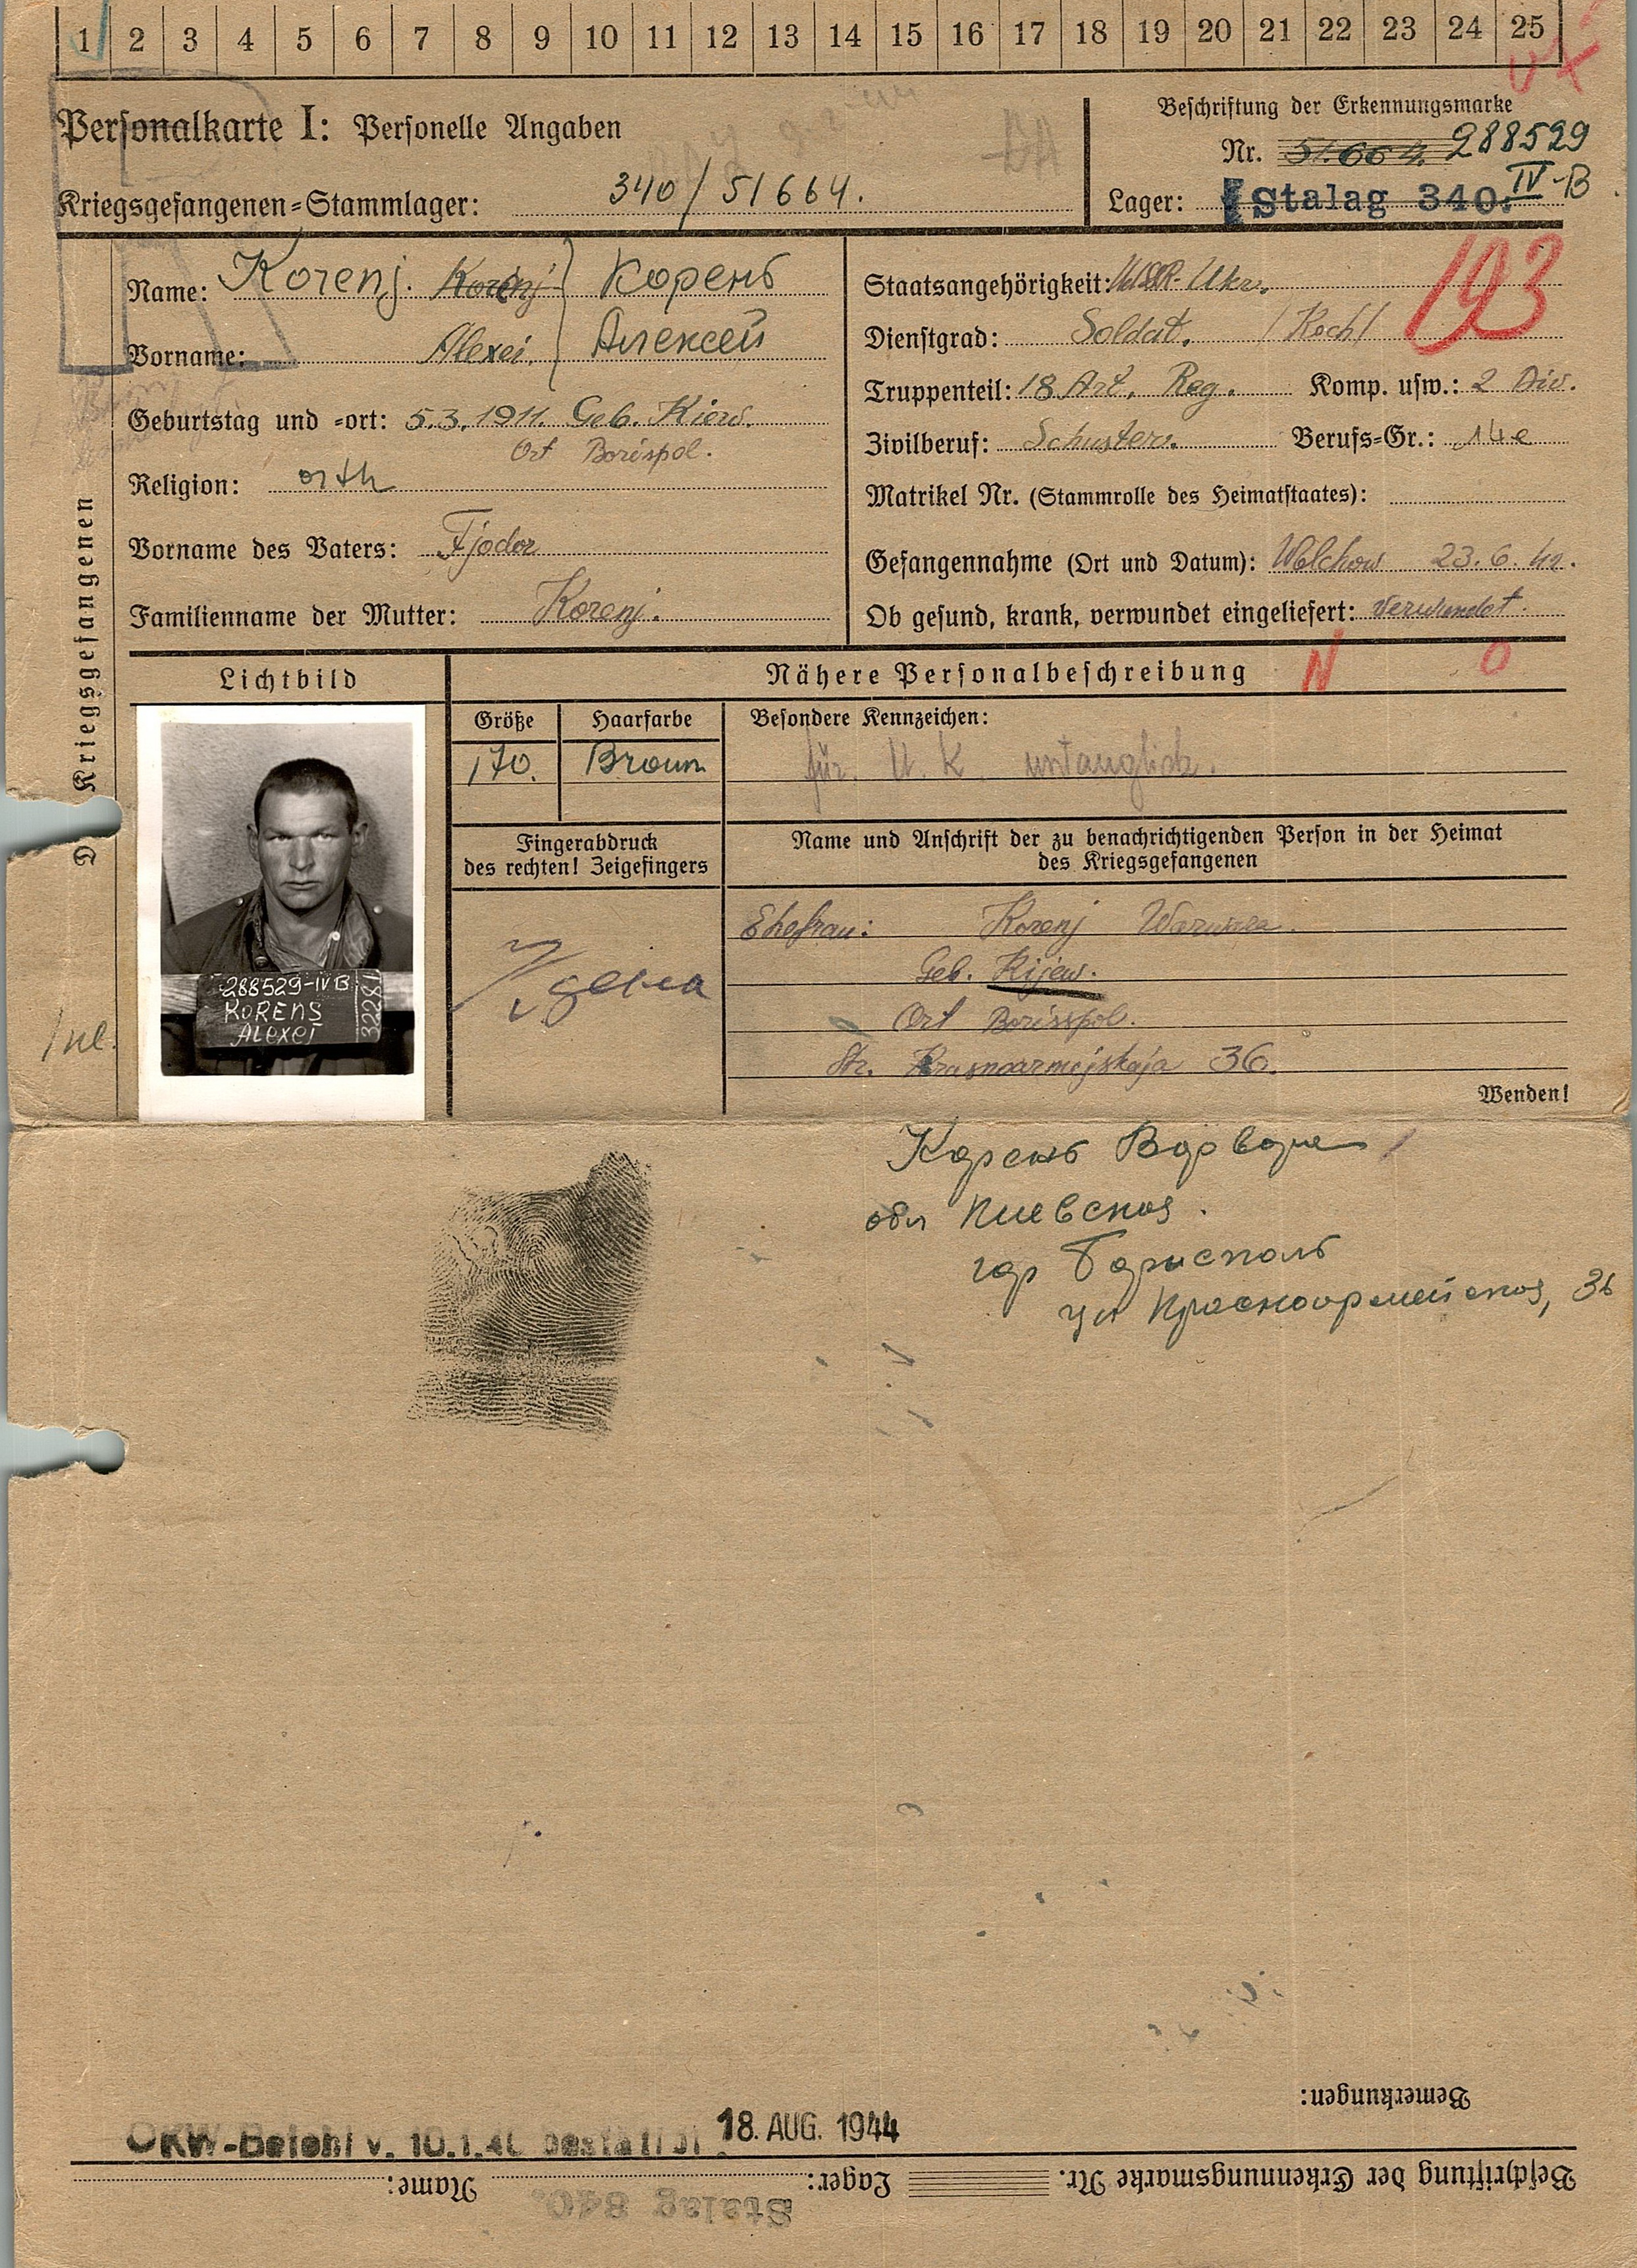 1 2 3 4 5 6 7 8 9 10 11 12 13 14 15 16 17 18 19 20 21 22 23 24 25
Personalkarte I: Personelle Angaben
Kriegsgefangenen=Stammlager: 340/51664.
Beschriftung der Erkennungsmarke
Nr. 51.664. 288529
Lager: Stalag 340. IV-B
Name: Korenj. Korenj Корень
Vorname: Alexei. Алексей
Geburtstag und =ort: 5.3.1911. Geb. Kiew.
Ort Borispol.
Religion: orth
Vorname des Vaters: Fjodor
Familienname der Mutter: Korenj.
Staatsangehörigkeit: Ukr.
193
Dienstgrad: Soldat. /Koch/
Truppenteil: 18 Art. Reg. Komp. usw.: 2 Div.
Zivilberuf: Schuster. Berufs=Gr.: 14e
Matrikel Nr. (Stammrolle des Heimatstaates):
Gefangennahme (Ort und Datum): Wolchow 23.6.42.
Ob gesund, krank, verwundet eingeliefert: verwundet.
Kriegsgefangenen
Lichtbild
Nähere Personalbeschreibung
N O
Größe Haarfarbe
170. Braun
Besondere Kennzeichen:
für U.K. untauglich.
Fingerabdruck
des rechten! Zeigefingers
Name und Anschrift der zu benachrichtigenden Person in der Heimat
des Kriegsgefangenen
Ehefrau: Korenj
Geb. Kijew.
Ort Borisspol.
Str. Krasnoarmejskaja 36.
Wenden!
288529-IVB
KORENS
Alexei
32281
Корень Варваре
обл Киевская.
гор Борисполь
ул Красноармейская, 36
Bemerkungen:
OKW-Befehl v. 18. AUG. 1944
Beschriftung der Erkennungsmarke Nr. Lager: Name:
Stalag 340.